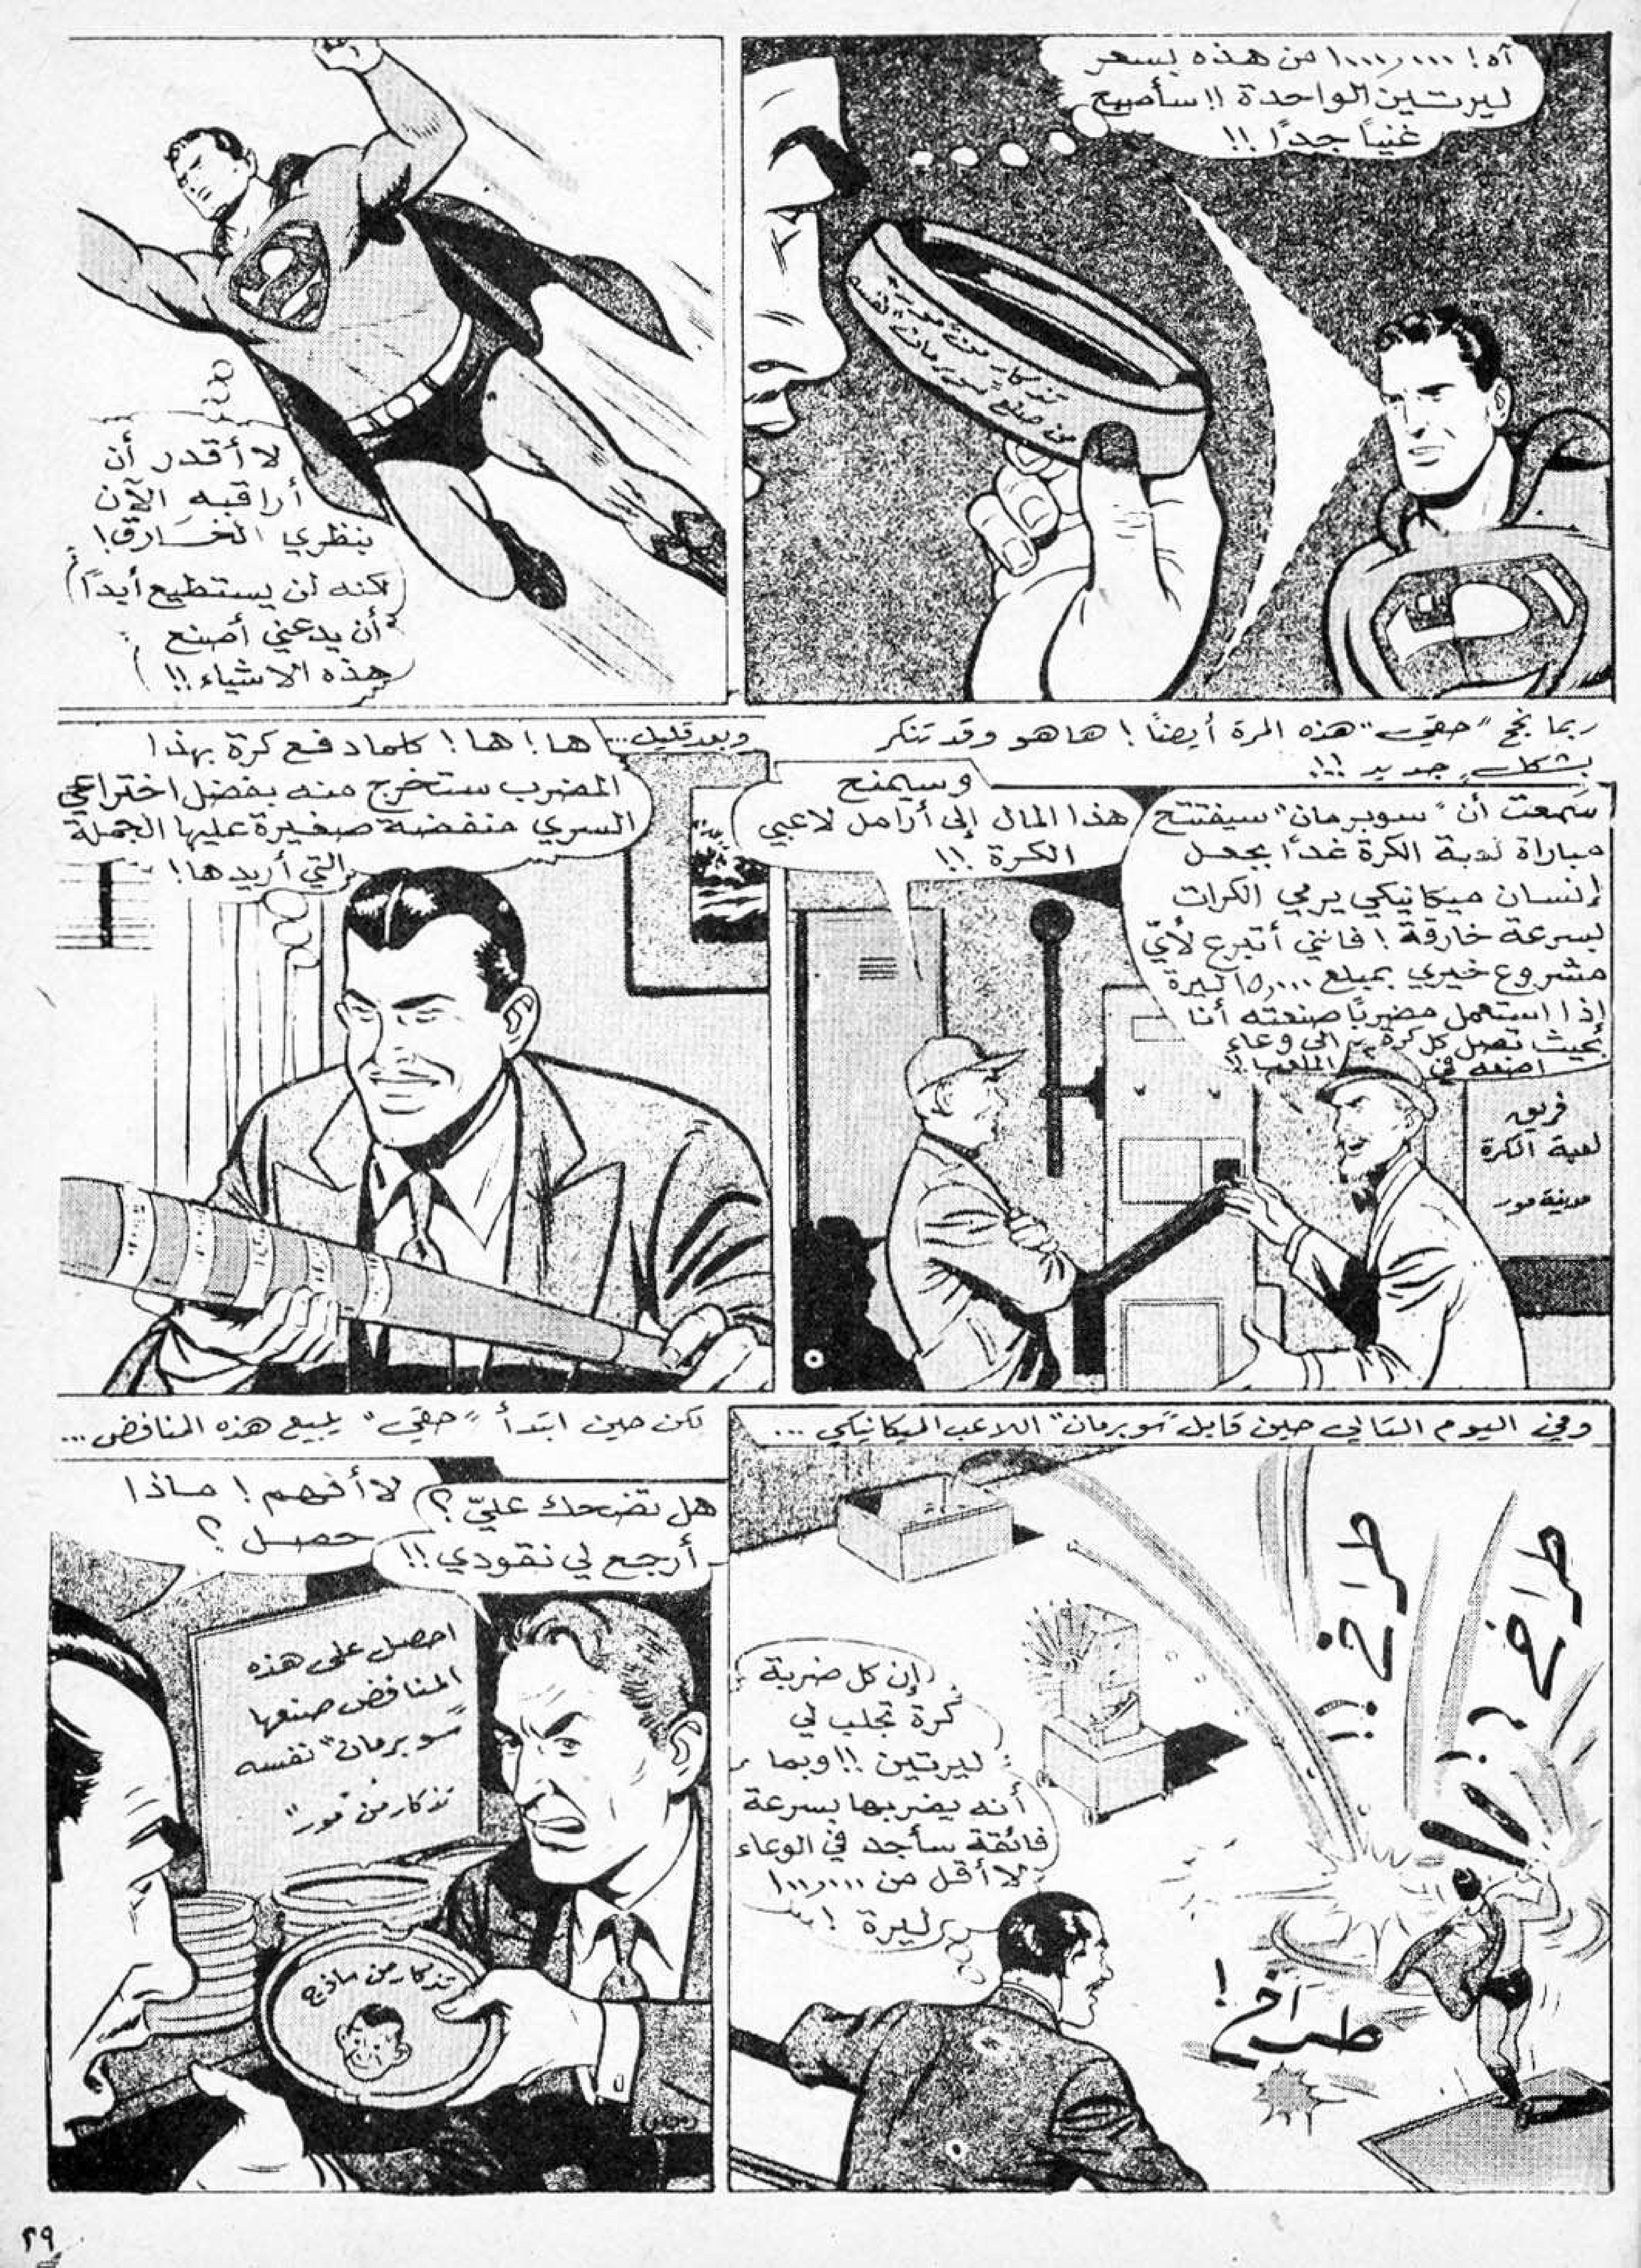 آه! ١٠٠٠٫٠٠٠ من هذه بسعر
ليرتين الواحدة !! سأصبح
غنياً جداً !!
تذكار من "مور"
من صنع سوبرمان نفسه
لا أقدر أن
أراقبه الآن
بنظري الخارق!
لكنه لن يستطيع أبداً
أن يدعني أصنع
هذه الاشياء !!
ربما نجح "حقي" هذه المرة أيضاً ! ها هو وقد تنكر
بشكل جديد !!!
سمعت أن "سوبرمان" سيفتتح
مباراة لعبة الكرة غداً بجعل
إنسان ميكانيكي يرمي الكرات
بسرعة خارقة ! فانني أتبرع لأيّ
مشروع خيري بمبلغ ١٥٫٠٠٠ ليرة
إذا استعمل مضرباً صنعته أنا
بحيث تصل كل كرة الى وعاء
اضعه في الملعب !!
وسيمنح
هذا المال إلى أرامل لاعبي
الكرة !!
فريق
لعبة الكرة
مدينة مور
وبعد قليل...
ها ! ها ! كلما دفع كرة بهذا
المضرب ستخرج منه بفضل اختراعي
السري منفضة صغيرة عليها الجملة
التي أريدها !
وفي اليوم التالي حين قابل "سوبرمان" اللاعب الميكانيكي ...
طراخ !!
طراخ !!
إن كل ضربة
كرة تجلب لي
ليرتين !! وبما
أنه يضربها بسرعة
فائقة سأجد في الوعاء
لا أقل من ١٠٠٫٠٠٠
ليرة !
طراخ !
لكن حين ابتدأ "حقي" يبيع هذه المنافض ...
هل تضحك عليّ ؟
أرجع لي نقودي !!
لا أفهم ! ماذا
حصل ؟
احصل على هذه
المنافض صنعها
"سوبرمان" نفسه
تذكار من "مور"
تذكار من ساذج
٢٩